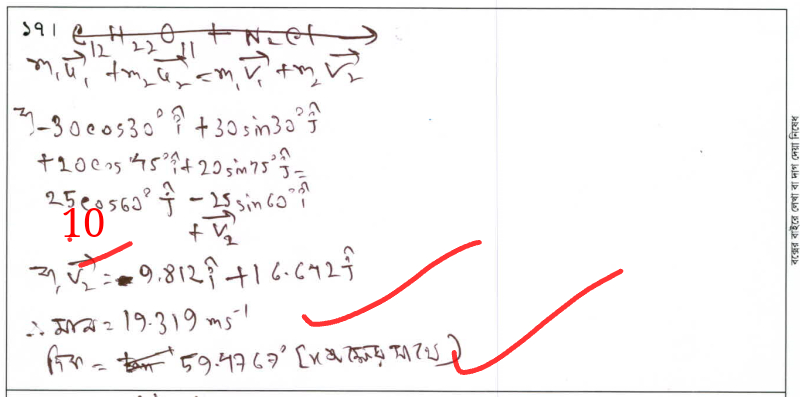 ১৭।
C₁₂H₂₂O₁₁ + N₂Cl →
m₁u₁⃗ + m₂u₂⃗ = m₁v₁⃗ + m₂v₂⃗
⇒ -30cos30° î + 30sin30° ĵ
+20cos 45° î + 20sin45° ĵ =
25cos60° ĵ - 25sin60° î
+ v₂⃗
10
⇒ v₂⃗ = 9.812 î + 16.642 ĵ
∴ মান = 19.319 ms⁻¹
দিক = 59.4767° [x অক্ষের সাথে]
বক্সের বাইরে লেখা বা দাগ দেয়া নিষেধ